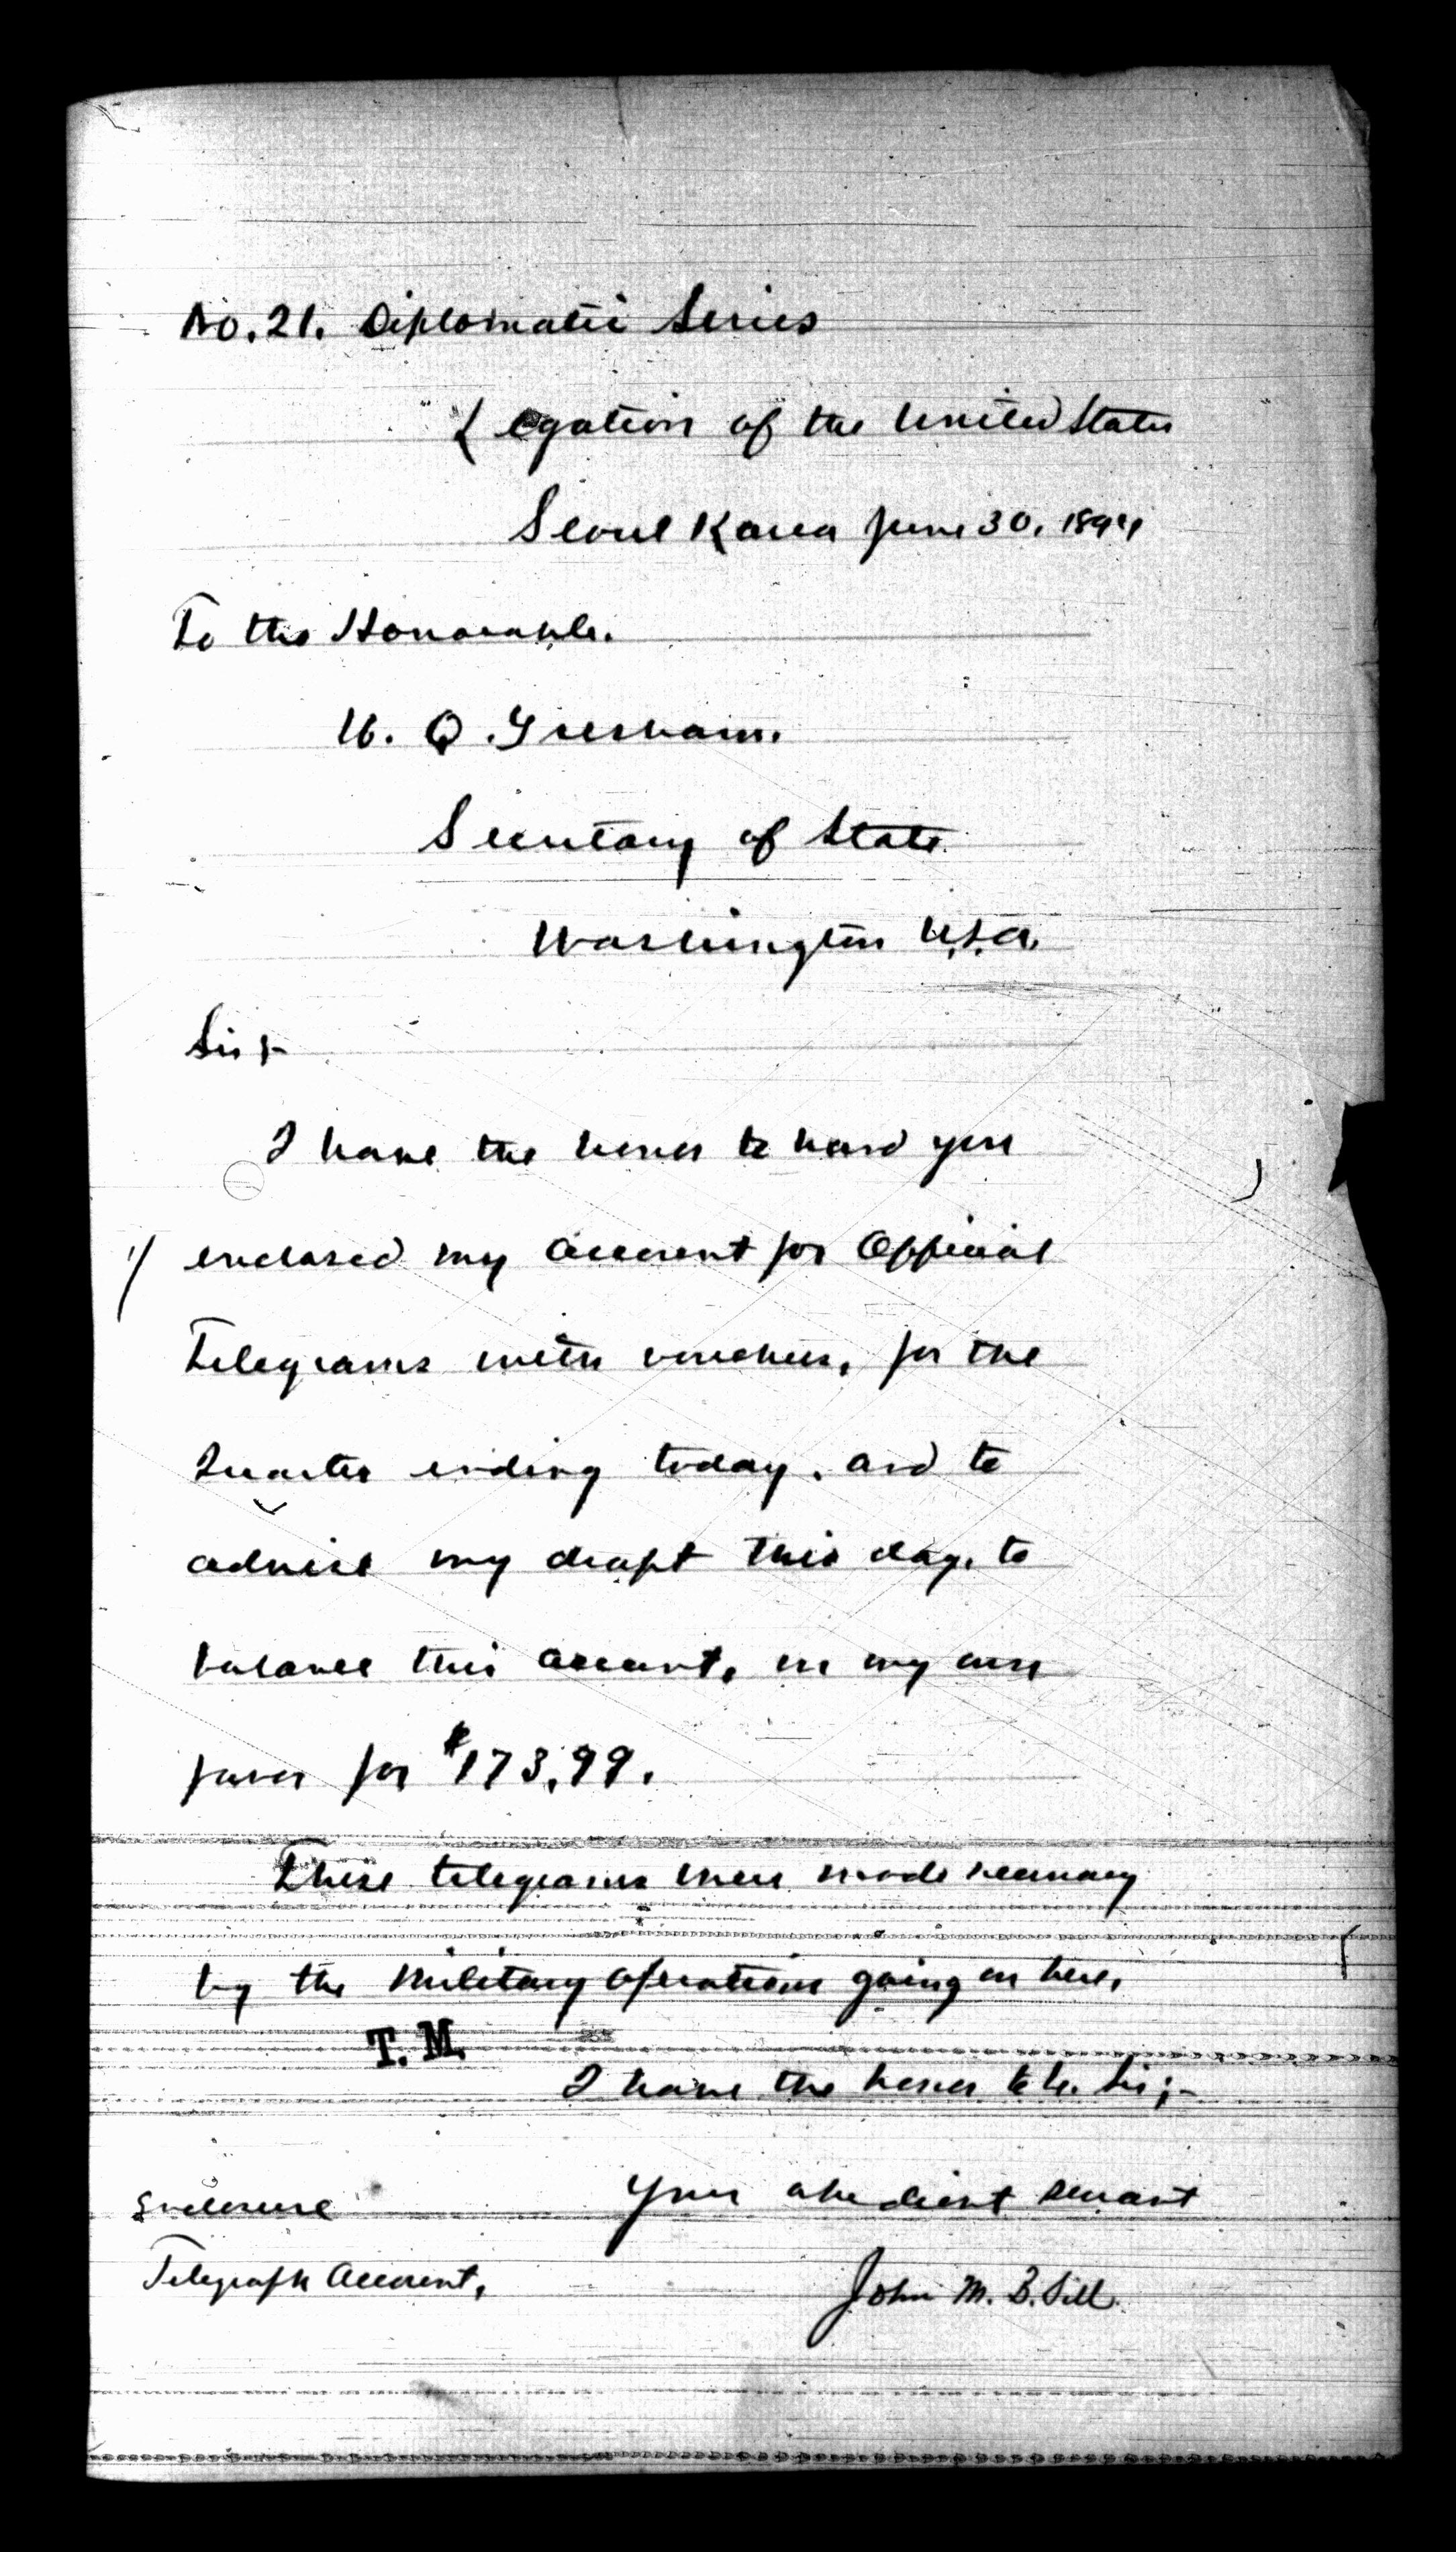 No. 21. Diplomatic Series
Legation of the United States
Seoul Korea June 30, 1894
To the Honorable.
W. Q. Gresham.
Secretary of State.
Washington U.S.A.
Sir;-
I have the honor to hand you
1/ enclosed my account for Official
Telegrams with vouchers, for the
Quarter ending today, and to
advise my draft this day, to
balance this account, in my own
favor for $173.99.
These telegrams were made necessary
by the Military Operations going on here,
T. M.
I have the honor to be Sir;-
Your obedient servant
Enclosure
Telegraph Account,
John M. B. Sill.